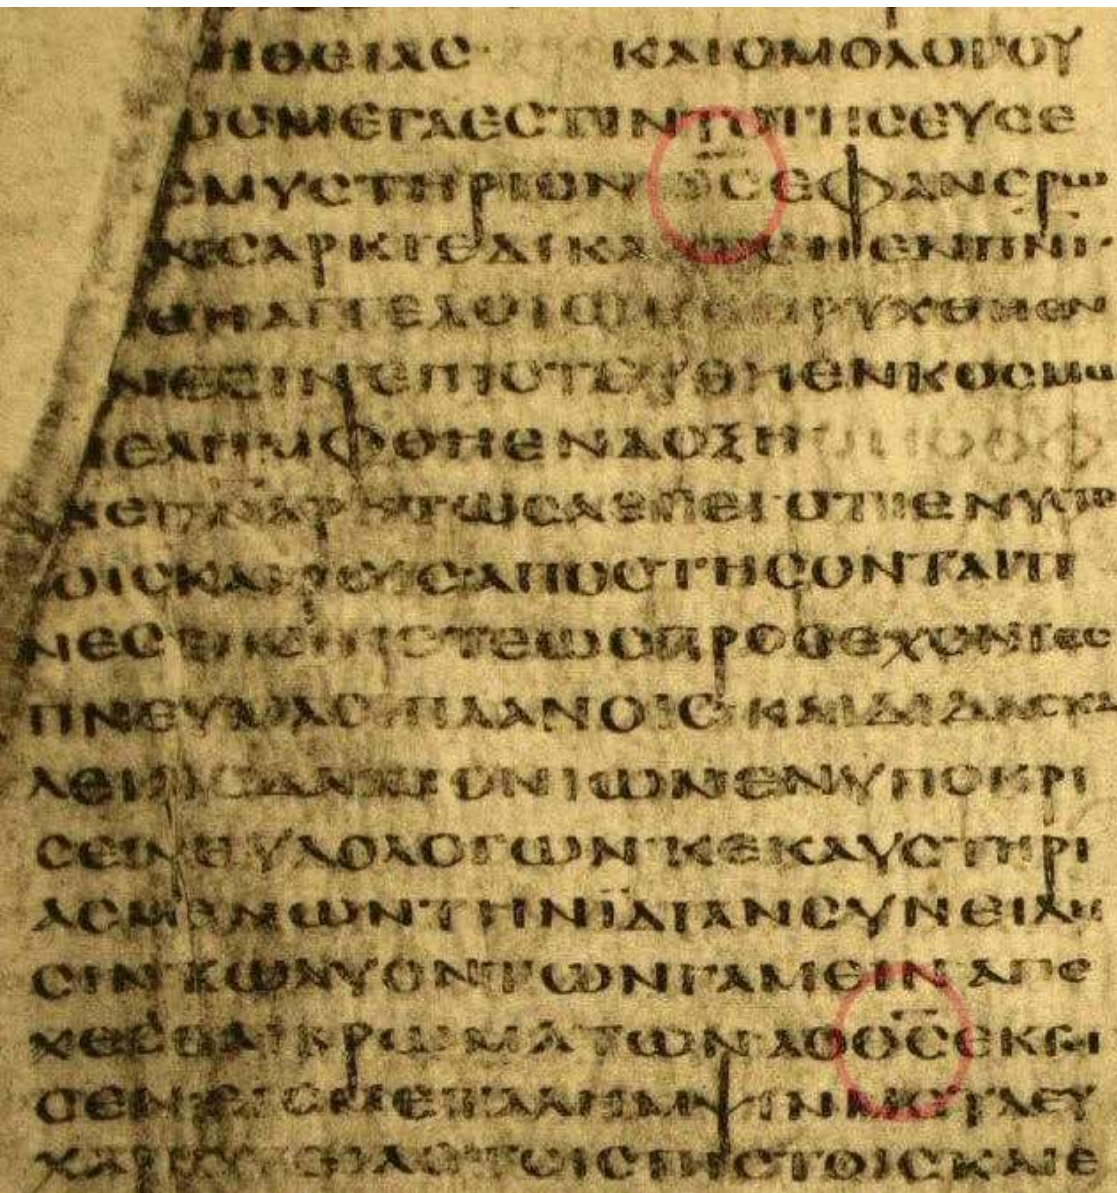 ΗΘΕΙΑΣ ΚΑΙΟΜΟΛΟΓΟΥ
ΟΣΜΕΓΑΕΣΤΙΝΤΟΤΗΣΕΥΣΕ
ΣΜΥΣΤΗΡΙΟΝΘΣΕΦΑΝΕΡΩ
ΝΣΑΡΚΙΕΔΙΚΑΙΩΘΗΕΝΠΝΙ
ΘΗΑΓΓΕΛΟΙΣΕΚΗΡΥΧΘΗΕΝ
ΝΕΣΙΝΕΠΙΣΤΕΥΘΗΕΝΚΟΣΜΩ
ΝΕΛΗΜΦΘΗΕΝΔΟΞΗ
ΡΗΤΩΣΛΕΓΕΙΟΤΙΕΝΥΣΤΕ
ΟΙΣΚΑΙΡΟΙΣΑΠΟΣΤΗΣΟΝΤΑΙΤΙ
ΝΕΣΤΗΣΠΙΣΤΕΩΣΠΡΟΣΕΧΟΝΤΕΣ
ΠΝΕΥΜΑΣΙΠΛΑΝΟΙΣΚΑΙΔΙΔΑΣΚΑ
ΛΕΙΑΙΣΔΑΙΜΟΝΙΩΝΕΝΥΠΟΚΡΙ
ΣΕΙΨΕΥΔΟΛΟΓΩΝΚΕΚΑΥΣΤΗΡΙ
ΑΣΜΕΝΩΝΤΗΝΪΔΙΑΝΣΥΝΕΙΔΗ
ΣΙΝΚΩΛΥΟΝΤΩΝΓΑΜΕΙΝ ΑΠΕ
ΧΕΣΘΑΙΒΡΩΜΑΤΩΝΑΟΘΣΕΚΤΙ
ΣΕΝΕΙΣΜΕΤΑΛΗΜΨΙΝΜΕΤΑΕΥ
ΧΑΡΙΣΤΙΑΣΤΟΙΣΠΙΣΤΟΙΣΚΑΙΕ